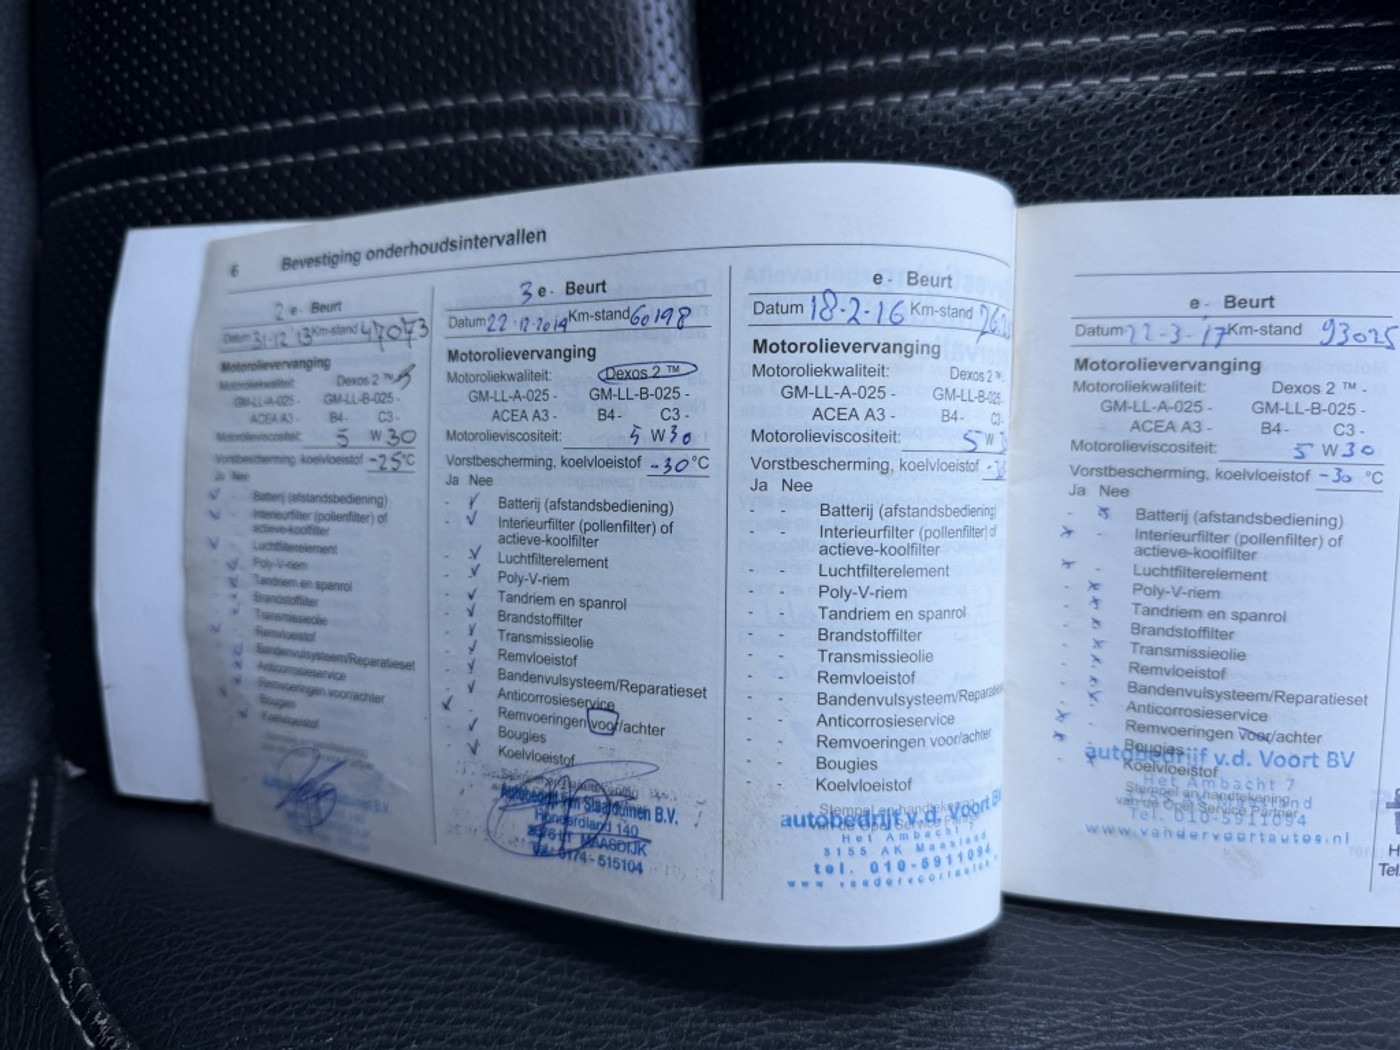 6 Bevestiging onderhoudsintervallen
2 e - Beurt
Datum 31-12 13 Km-stand 47073
Motorolievervanging
Motoroliekwaliteit: Dexos 2 ™
GM-LL-A-025 - GM-LL-B-025 -
ACEA A3 - B4 - C3 -
Motorolieviscositeit: 5 W 30
Vorstbescherming, koelvloeistof -25 °C
Ja Nee
Batterij (afstandsbediening)
Interieurfilter (pollenfilter) of
actieve-koolfilter
Luchtfilterelement
Poly-V-riem
Tandriem en spanrol
Brandstoffilter
Transmissieolie
Remvloeistof
Bandenvulsysteem/Reparatieset
Anticorrosieservice
Remvoeringen voor/achter
Bougies
Koelvloeistof
3 e - Beurt
Datum 22-12-2014 Km-stand 60198
Motorolievervanging
Motoroliekwaliteit: Dexos 2 ™
GM-LL-A-025 - GM-LL-B-025 -
ACEA A3 - B4 - C3 -
Motorolieviscositeit: 5 W 30
Vorstbescherming, koelvloeistof -30 °C
Ja Nee
Batterij (afstandsbediening)
Interieurfilter (pollenfilter) of
actieve-koolfilter
Luchtfilterelement
Poly-V-riem
Tandriem en spanrol
Brandstoffilter
Transmissieolie
Remvloeistof
Bandenvulsysteem/Reparatieset
Anticorrosieservice
Remvoeringen voor/achter
Bougies
Koelvloeistof
Autobedrijf van Staalduinen B.V.
Honderdland 140
2676 LT MAASDIJK
Tel. 0174 - 515104
e - Beurt
Datum 18-2-16 Km-stand
Motorolievervanging
Motoroliekwaliteit: Dexos 2 ™
GM-LL-A-025 - GM-LL-B-025
ACEA A3 - B4 - C3
Motorolieviscositeit: 5 W
Vorstbescherming, koelvloeistof
Ja Nee
- - Batterij (afstandsbediening)
- - Interieurfilter (pollenfilter) of
actieve-koolfilter
- - Luchtfilterelement
- - Poly-V-riem
- - Tandriem en spanrol
- - Brandstoffilter
- - Transmissieolie
- - Remvloeistof
- - Bandenvulsysteem/Reparatieset
- - Anticorrosieservice
- - Remvoeringen voor/achter
- - Bougies
- - Koelvloeistof
Stempel en handtekening
van de Opel Service Partner
autobedrijf v.d. Voort BV
Het Ambacht 7
3155 AK Maasland
tel. 010-5911094
www.vandervoortautos.
e - Beurt
Datum 22-3-17 Km-stand 93025
Motorolievervanging
Motoroliekwaliteit: Dexos 2 ™ -
GM-LL-A-025 - GM-LL-B-025 -
ACEA A3 - B4 - C3 -
Motorolieviscositeit: 5 W 30
Vorstbescherming, koelvloeistof -30 °C
Ja Nee
Batterij (afstandsbediening)
Interieurfilter (pollenfilter) of
actieve-koolfilter
Luchtfilterelement
Poly-V-riem
Tandriem en spanrol
Brandstoffilter
Transmissieolie
Remvloeistof
Bandenvulsysteem/Reparatieset
Anticorrosieservice
Remvoeringen voor/achter
Bougies
Koelvloeistof
Stempel en handtekening
van de Opel Service Partner
autobedrijf v.d. Voort BV
Het Ambacht 7
Tel. 010-5911094
www.vandervoortautos.nl
H
Tel.